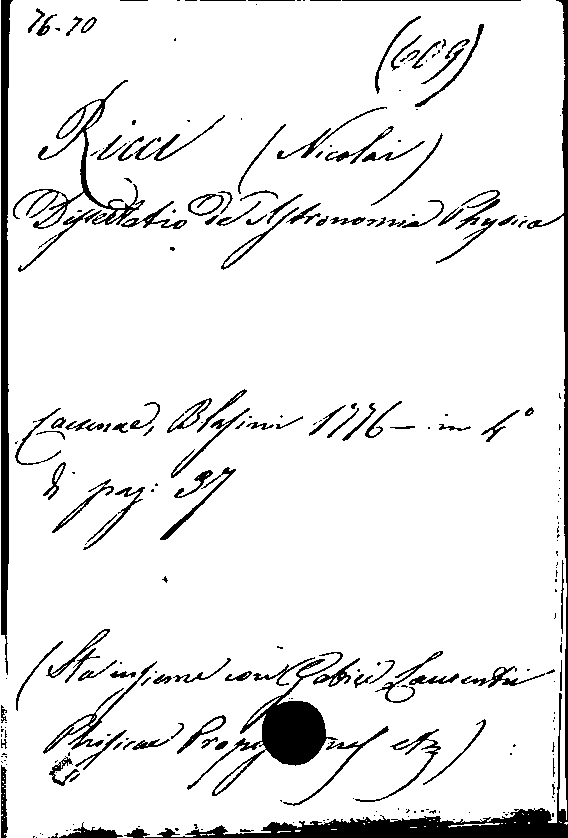 76-70
(609)
Ricci (Nicolai)
Dissertatio De Astronomia Physica
Caesenae, Blasini 1776 — in 4°
di pag: 37
(Sta insieme con Gabici Laurentii
Phisicae etz)